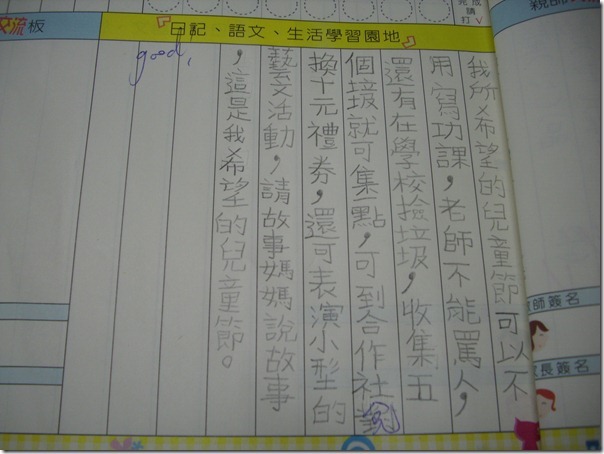 交流板
日記、語文、生活學習園地
完成
請
打√
親師
我所希望的兒童節可以不
用寫功課，老師不能罵人，
還有在學校撿垃圾，收集五
個就可集一點，可到合作社兌
換十元禮券，還可表演小型的
藝文活動，請故事媽媽說故事
，這是我希望的兒童節。
good,
師簽名
長簽名